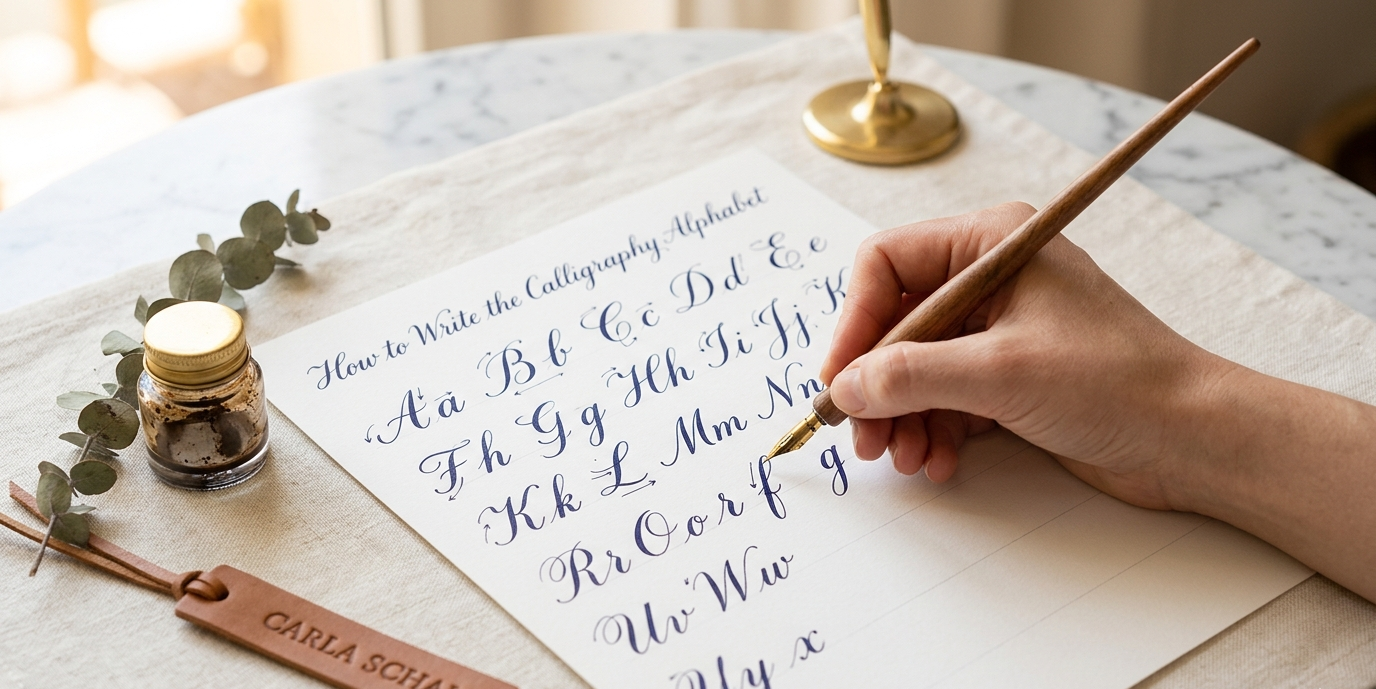 How to Write the Calligraphy Alphabet
Aa Bb Cc Dd Ee
Fh Gg Hh Ii Jj K
Kk L Mm Nn
Rr Oo r f g
Uv Ww
Uy x
CARLA SCHA